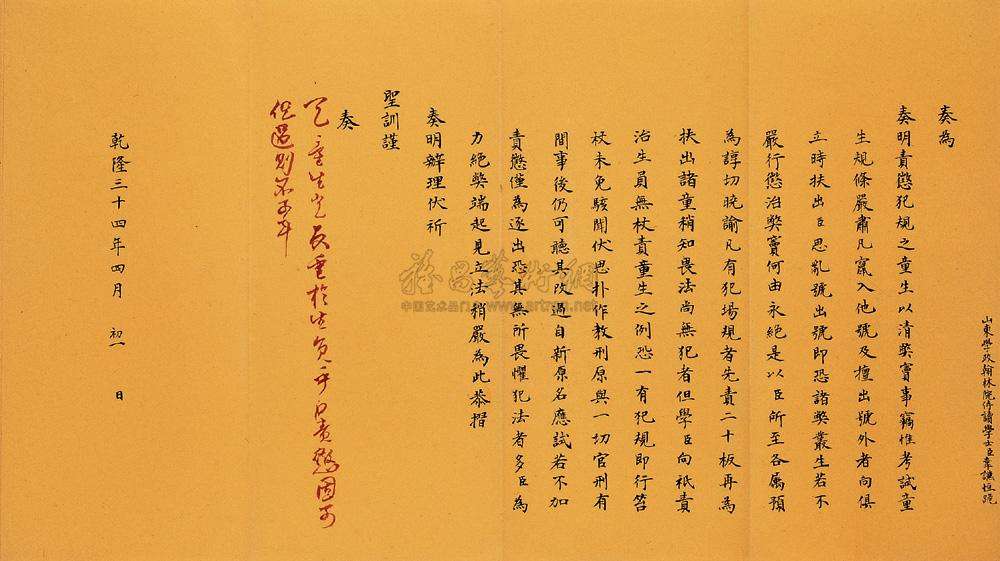 山東學政翰林院侍讀學士臣韋謙恒跪
奏為
奏明責懲犯規之童生以清弊竇事竊惟考試童
生規條嚴肅凡竄入他號及擅出號外者向俱
立時扶出臣思亂號出號即恐諸弊叢生若不
嚴行懲治弊竇何由永絕是以臣所至各屬預
為諄切曉諭凡有犯場規者先責二十板再為
扶出諸童稍知畏法尚無犯者但學臣向祇責
治生員無杖責童生之例恐一有犯規即行笞
杖未免駭聞伏思扑作教刑原與一切官刑有
間事後仍可聽其改過自新原名應試若不加
責懲僅為逐出恐其無所畏懼犯法者多臣為
力絕弊端起見立法稍嚴為此恭摺
奏明辦理伏祈
聖訓謹
奏
童生豈反重於生員乎責懲固可
但過則不可耳
乾隆三十四年四月初一日
雅昌藝術網
www.artron.net